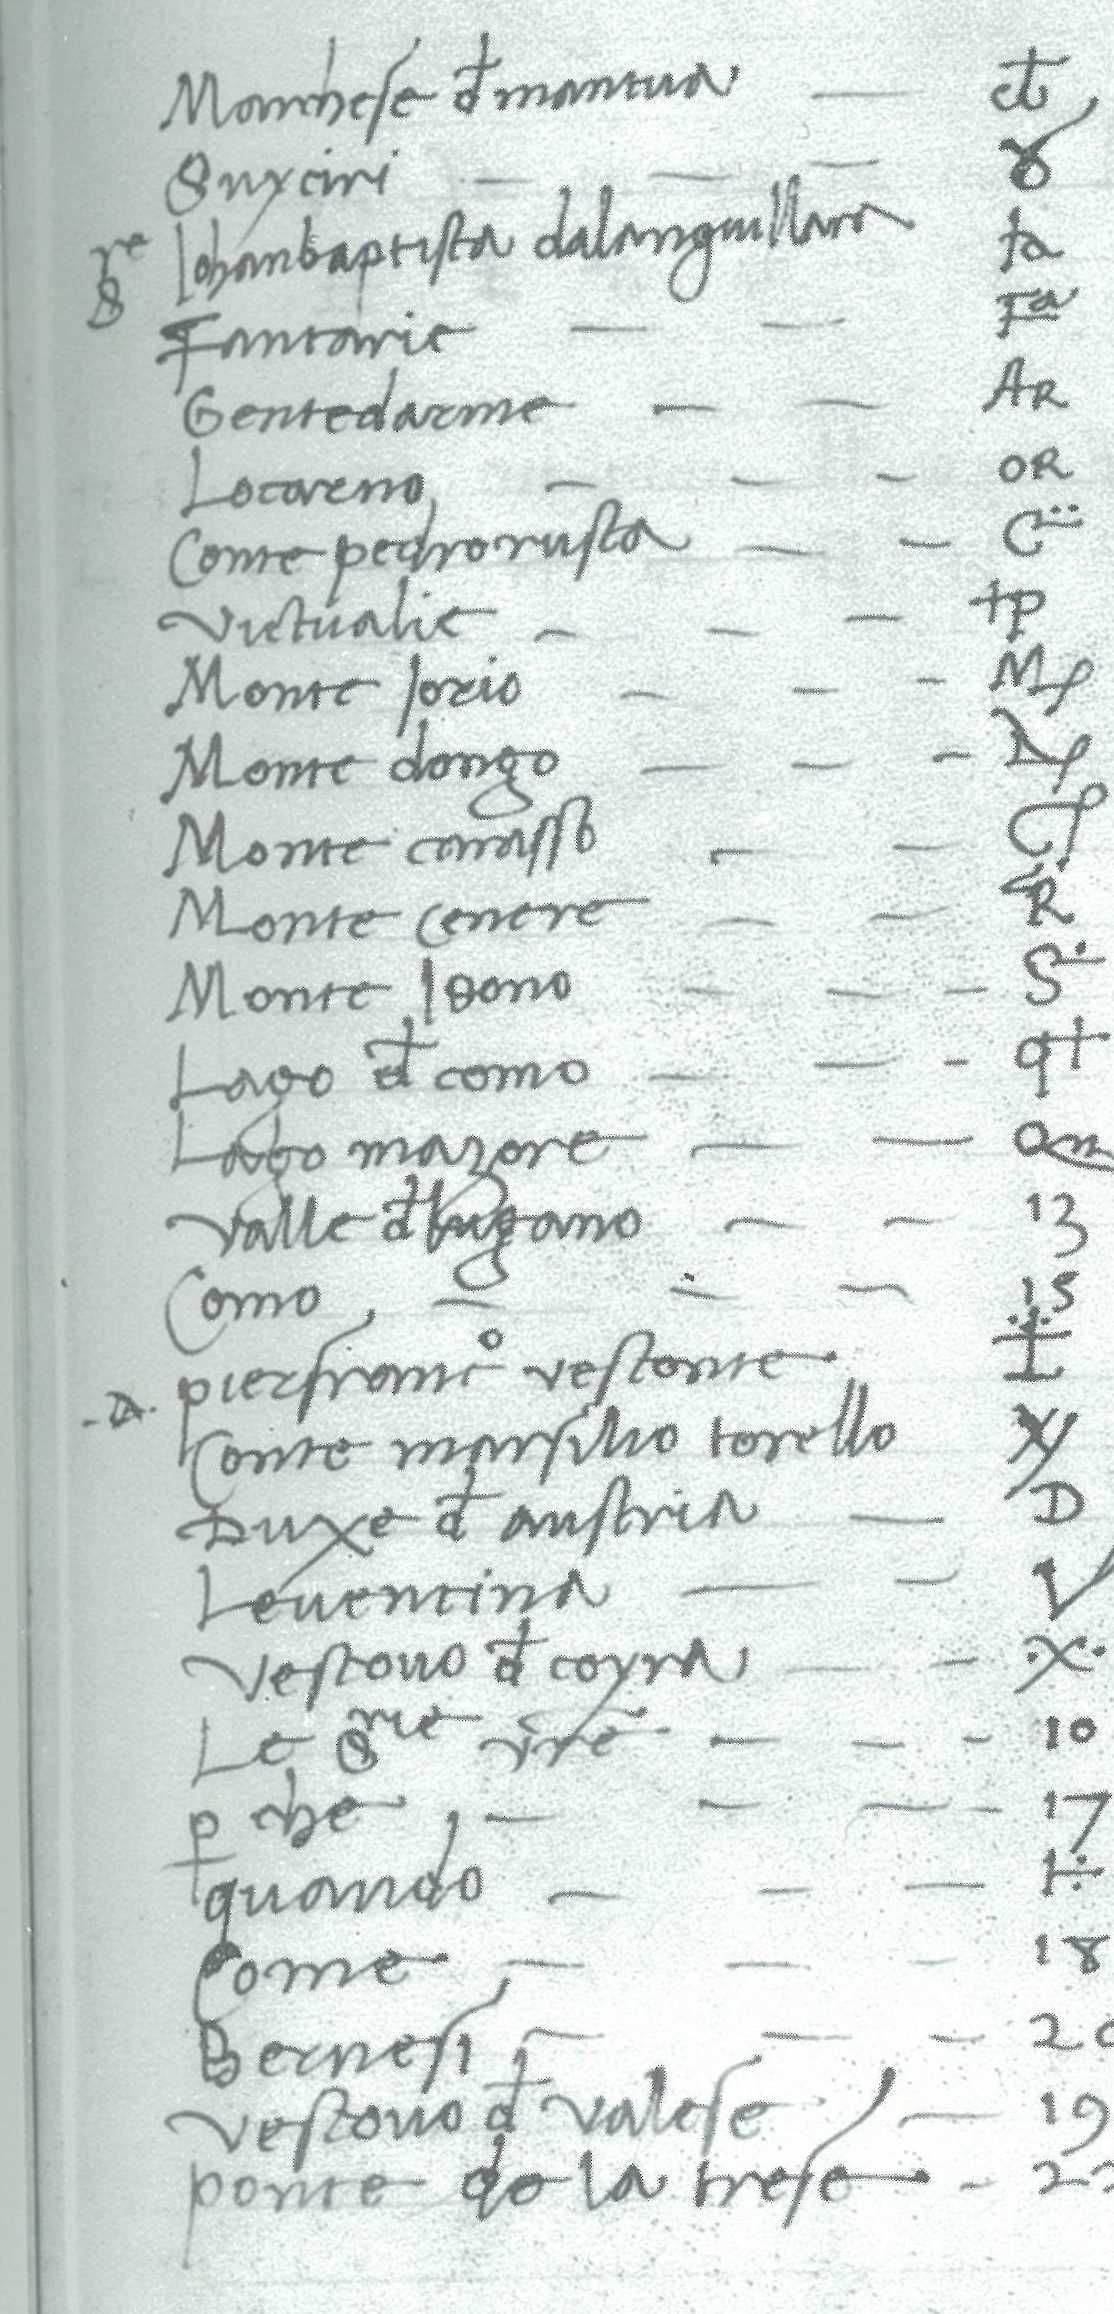 Marchese đ mantua — ct
Suyceri — — — 8
S.re Iohanbaptista dalanguillara ta
Fantarie — — Fa
Gentedarme — — AR
Locareno — — — OR
Conte pedro rusta — — C
victualie — — — +p
Monte Iorio — — — M
Monte dongo — — —
Monte carasso — — C
Monte cenere — — R
Monte Isono — — — S
Lago đ como — — — q+
Lago mazore — — am
Valle đ lugano — — 13
Como — — — 15
pierfranc.o vestonte
.D. Conte marsilio torello xy
Duxe đ austria — D
Leventina — — V
Vescovo đ coyra — — .x.
Le S.rie vr̃e — — — 10
p che — — — — 17
quando — — —
Come — — — 18
Bernesi — — — 20
Vescovo đ valese — 19
ponte de la trese —